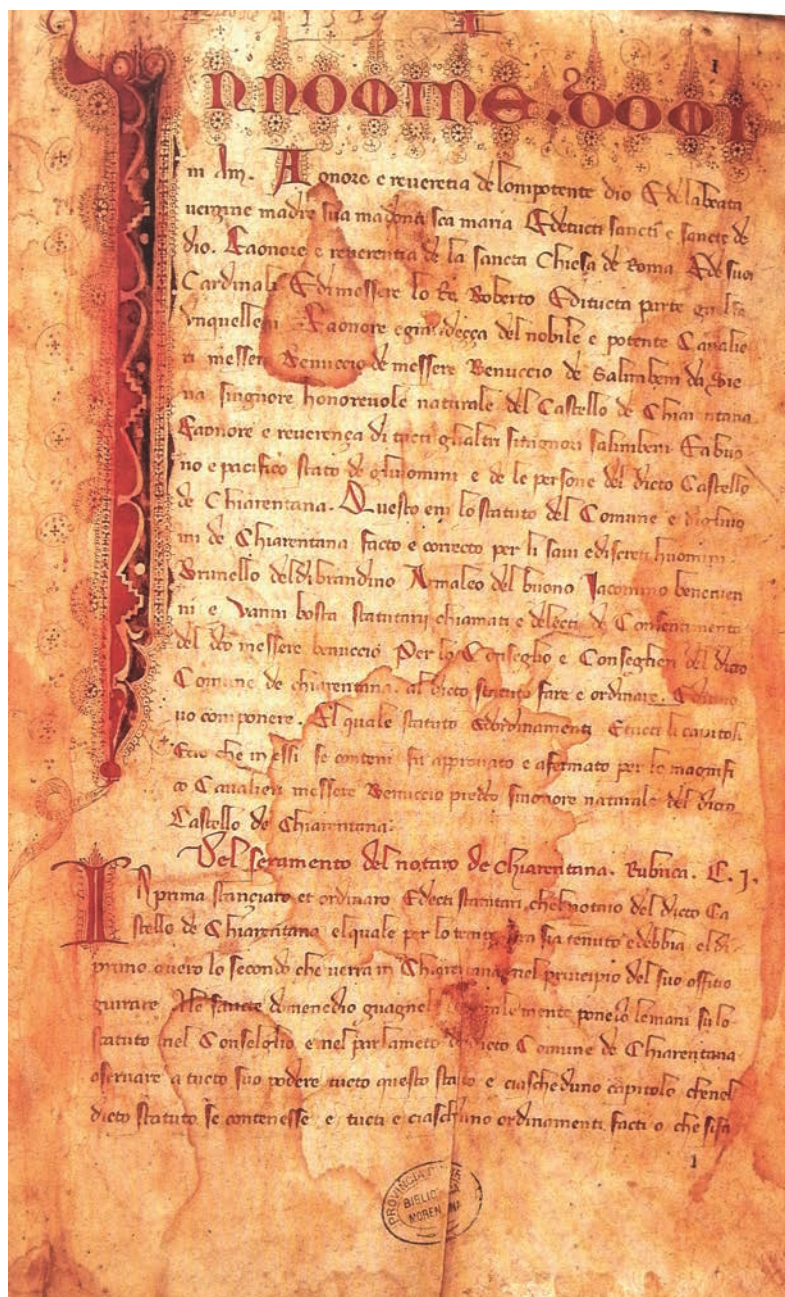 1
IN NOMINE . DOMI
ni Am. A onore e reverētia de lonipotente dio E de la beata
vergine madre sua madonna sca maria E de tucti sancti e sancte de
dio. E a onore e reverentia de la sancta Chiesa de Roma E de suoi
Cardinali E di messere lo Re Roberto E di tucta parte guelfa
E a onore e grandeçça del nobile e potente Cavalie
ri messere Benuccio de messere Benuccio de Salimbeni da Sie
na singnore honorevole naturale del Castello de Chiarentana
E a onore e reverença di tucti gli altri singnori salimbeni E a buo
no e pacifico stato de gluomini e de le persone del dicto Castello
de Chiarentana. Questo enj lo statuto del Comune e digluuo
mi de Chiarentana facto e correcto per li savi e discreti huomini
Brunello deldibrandino Amaleo del buono Jacomino benevien
ni e Vanni bosta statutarij chiamati e delecti de Consentimento
del dco messere benuccio Per lo Conseglio e Conseglieri del dicto
Comune de chiarentana. al dicto statuto fare e ordinare. E di nuo
vo componere. El quale statuto E ordinamenti E tucti li capitoli
E cio che in essi se conteni fu approvato e afermato per lo magnifi
co Cavalieri messere Benuccio predco singnore naturale del dicto
Castello de Chiarentana.
Del seramento del notaro de Chiarentana. Rubrica. C. j.
IN prima stançiaro et ordinaro E decti statutari, chel notaio del dicto Ca
stello de Chiarentana elquale per lo tempo sia tenuto e debbia el di
primo overo lo secondo che verra in Chiarentana nel principio del suo offitio
giurare A le sancte domenedio guagnel corporalemente ponēdo le mani su lo
statuto nel Conselglio e nel parlamēto del dicto Comune de Chiarentana
oservare a tucto suo podere tucto questo statuto e ciascheduno capitolo che nel
dicto statuto se contenesse e tucti e ciaschuno ordinamenti facti o che si fa
1
PROVINCIA
BIBLIO
MORENIANA